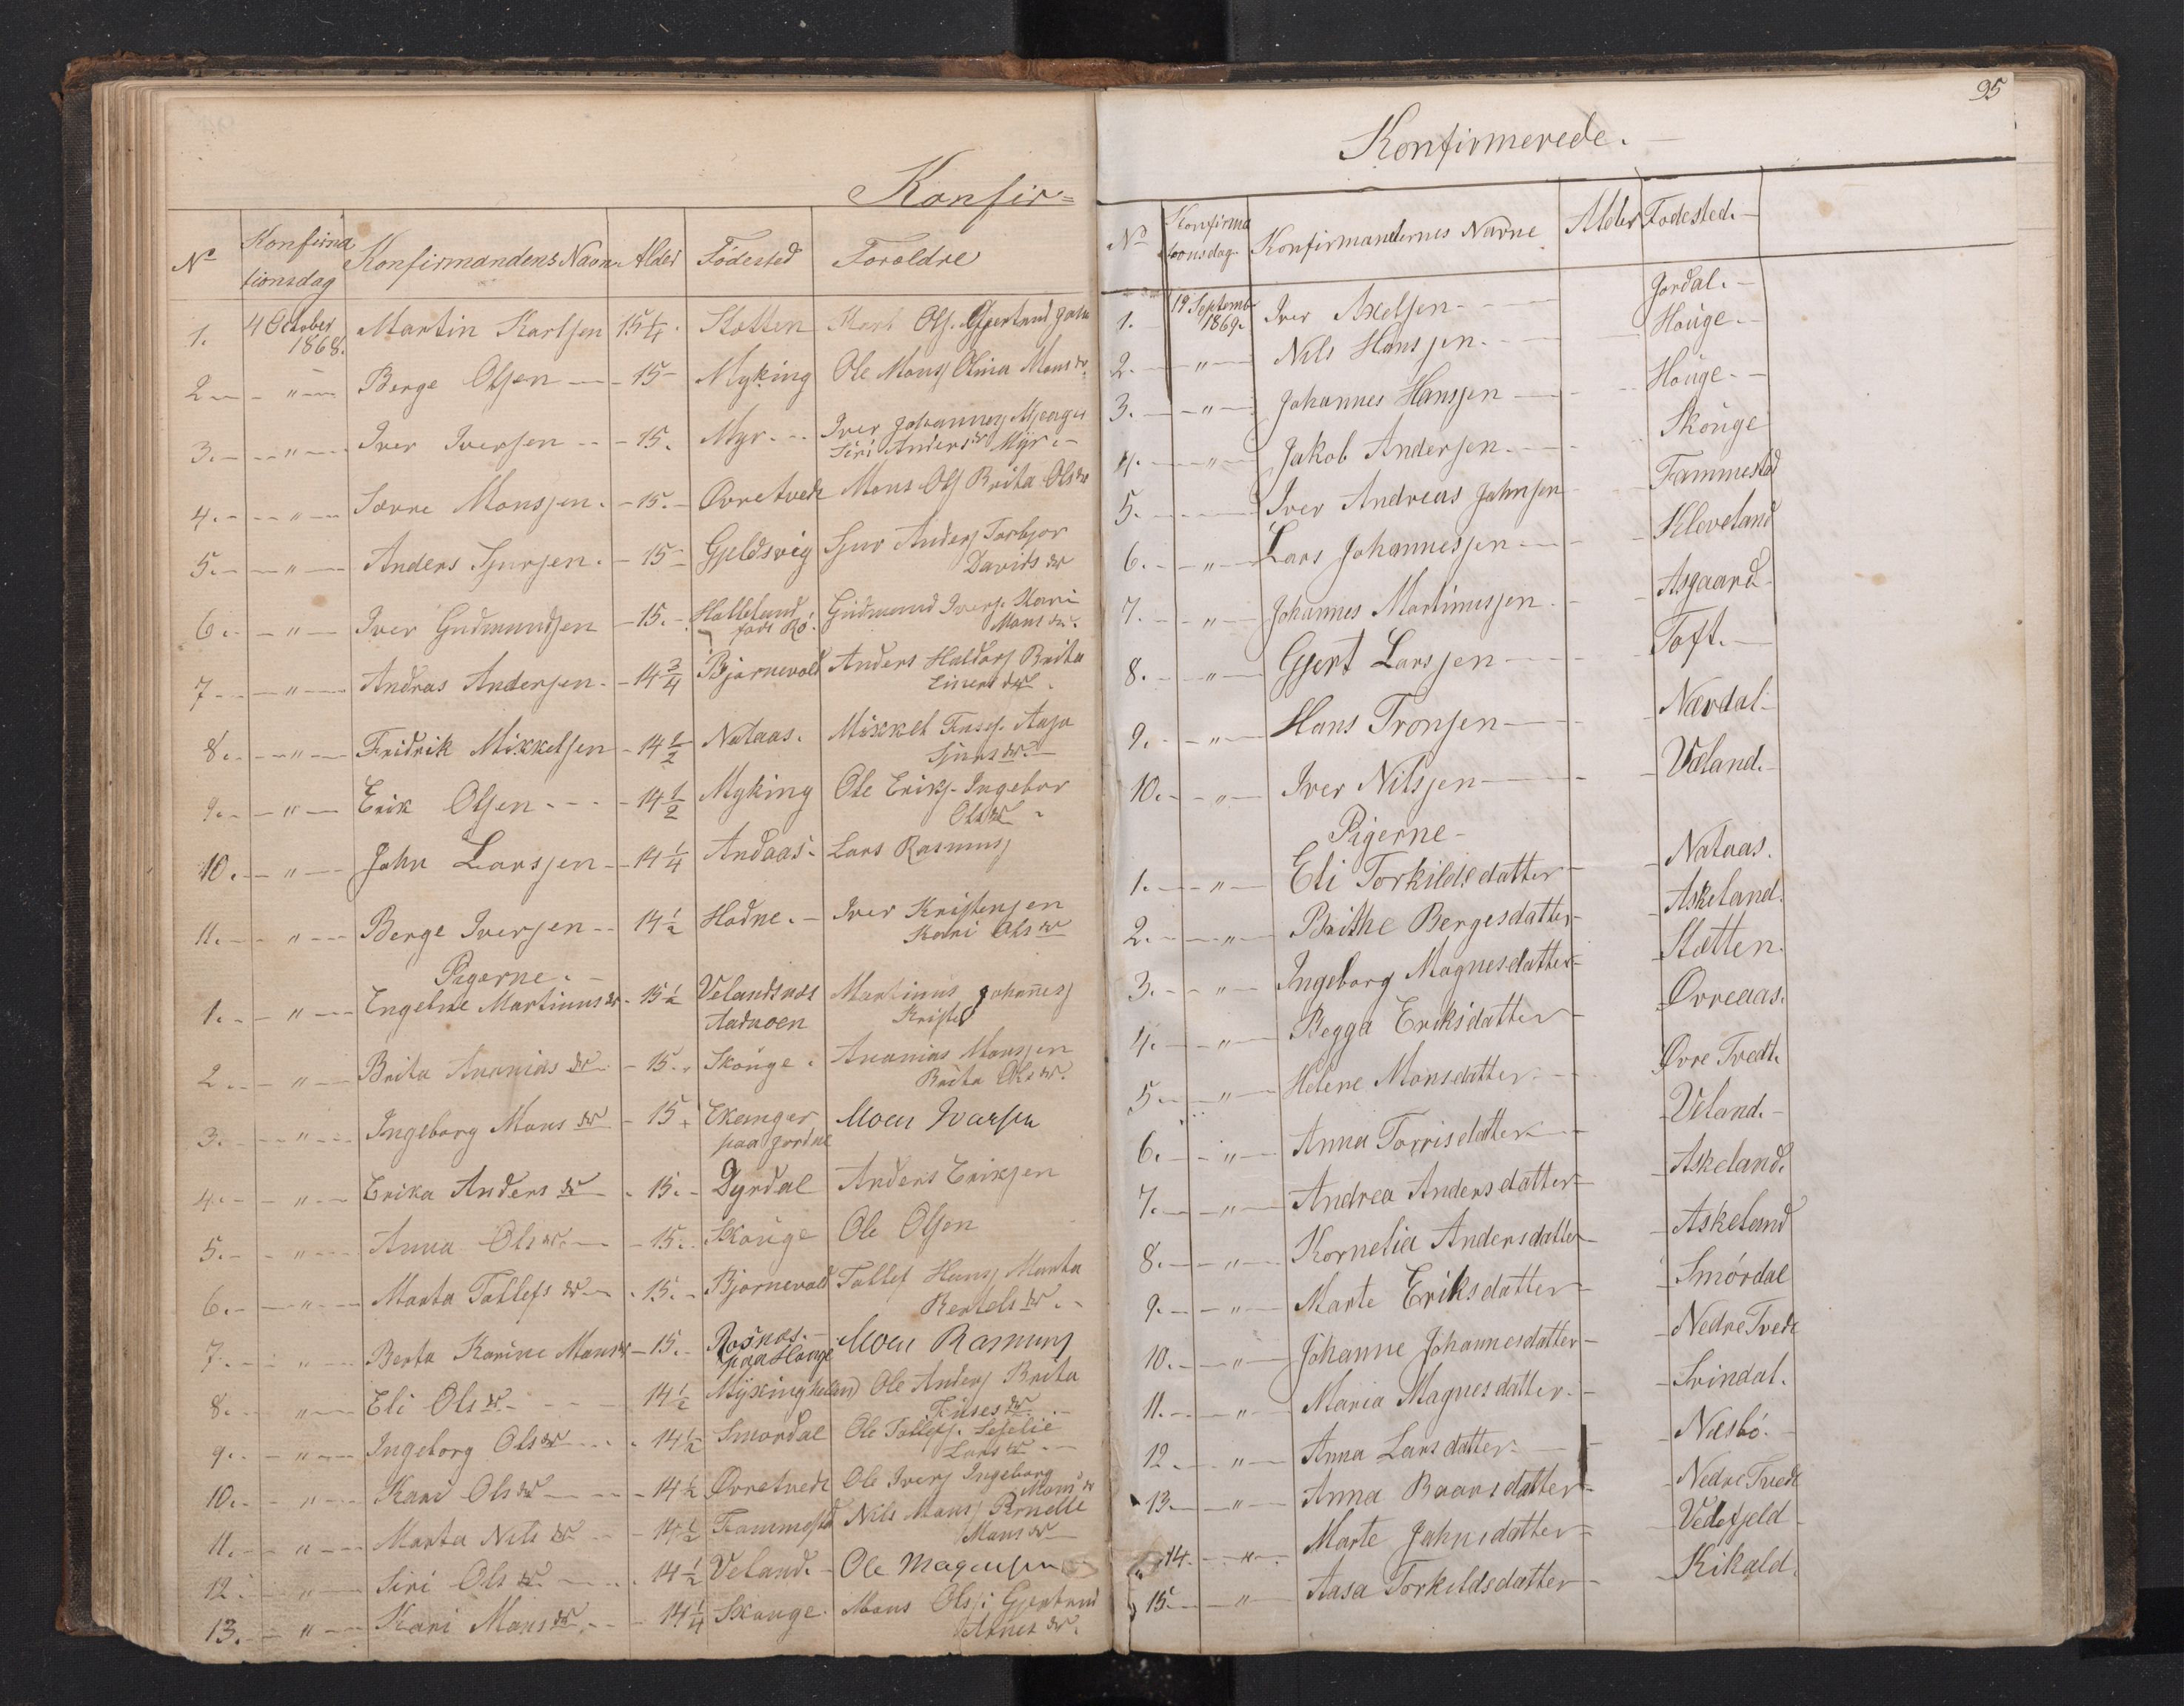 Konfir=
No Konfirma
tionsdag Konfirmandens Navn Alder Födested Foroldre
1. 4 October
1868. Martin Karlsen 15 1/4 Stotten Olsj. Gjertrud
2 " Berge Olsen 15 Myking Ole Monsj Olina Mons dr
3. " Iver Iversen 15. Myr. Iver Johannesj
Siri Anders dr Myr
4. " Monssen. 15. Ovretvedt Mons Olsj Brita Ols dr
5. " Anders Sjursen. 15 Gjeldsvig Sjur Andersj Torbjor
Davids dr
6. " Iver Gudmundsen 15. Hatletund
Gudmund Iversj. Kari
Mons dr.
7 " Andras Andersen. 14 3/4 Bjornevold Anders Haldorsj Brita
Einers dr
8. " Fridrik Mikkelsen 14 1/2 Nataas. Mikkel
Sjurs dr.
9. " Erik Olsen 14 1/2 Myking Ole Eriksj. Ingebor
Ols dr
10. " John Larssen 14 1/4 Andaas Lars Rasmusj
11. " Berge Iversen 14 1/2 Hodne. Iver Kristensen
Kari Ols dr
Pigerne.
1. " Engeline Martinus dr 15 1/2 Velandsnos
Martinus Johanesj
2 " Brita Ananias dr 15. Skouge. Ananias Monssen
Brita Ols dr.
3. " Ingeborg Mons dr 15. Ekanger
paa Moen
4. " Erika Anders dr 15. Dyrdal Anders Eriksen
5. " Anna Ols dr. 15. Skouge Ole Olsen
6. " Marta Tollefs dr 15. Bjornevold Tollef Hansj Marta
Bertels dr.
7. " Berta Karine Mons dr 15. Rosnos.
paa Houge Rasmusj
8. " Eli Ols dr 14 1/2 Ole Andersj Brita
9. " Ingeborg Ols dr 14 1/2 Smordal Ole Tollefsj.
Lars dr
10. " Kari Ols dr 14 1/2 Ovretvedt Ole Iversj Ingeborg
Mons dr
11. " Marta Nils dr 14 1/2 Frammestd Nils Monsj Pernelle
Mons dr
12. " Siri Ols dr. 14 1/2 Veland. Ole Magnusen
13. " Kari Mons dr 14 1/4 Skouge. Mons Olsj Gjertrud
Arnes dr.
95
Konfirmerede.
No Konfirma
tionsdag. Konfirmandernes Navne Alder Fodested.
1. 19 Septemb
1869. Iver Axelsen Jordal.
2. " Nils Hanssen. Houge.
3. " Johannes Hanssen Houge.
4. " Jakob Andersen. Skouge
5. Iver Andreas Johnsen Fammestad
6. " Lars Johannessen Kloveland
7. " Johannes Martinussen. Asgaard
8. " Gjert Larssen Toft.
9. " Hans Tronsen Nævdal
10. " Iver Nilssen Væland.
Pigerne
1. " Eli Torkildsdatter Nataas.
2. " Brithe Bergesdatter Askeland.
3. " Ingeborg Magnesdatter Stotten.
4. " Begga Eriksdatter Ovreaas.
5. " Helene Monsdatter. Ovre Tvedt.
6. " Anna Torrisdatter Veland.
7. " Andrea Andersdatter Askeland.
8. " Kornelia Andersdatter Askeland
9. " Marte Eriksdatter Smördal
10. " Johanne Johannesdatter Nedre Tvedt
11. " Maria Magnesdatter. Svindal.
12 " Anna Larsdatter. Næsbö.
13. " Anna Baarsdatter Nedre Tvedt
14. " Marte Johnsdatter Vedefjeld
15. " Aasa Torkildsdatter Kikald.